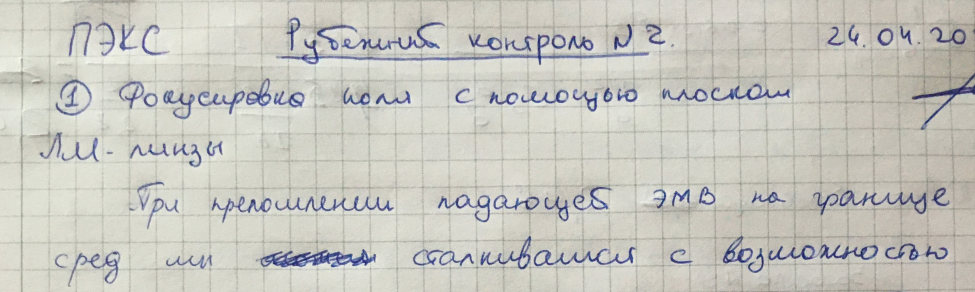 ПЭКС Рубежный контроль N 2. 24.04.20
① Фокусировка поля с помощью плоской
ЛМ-линзы
При преломлении падающей ЭМВ на границе
сред мы сталкиваемся с возможностью